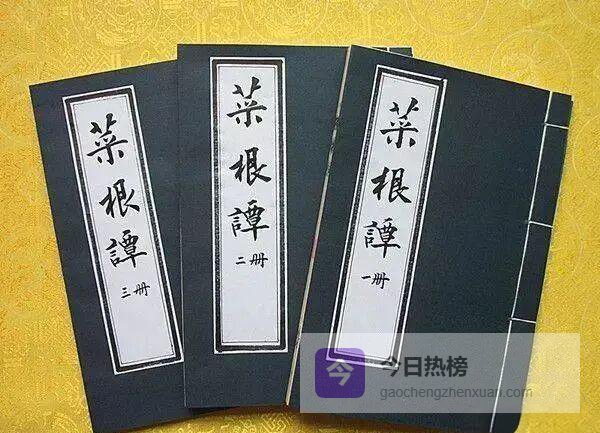 菜根譚
三册
菜根譚
二册
菜根譚
一册
今
今日热榜
gaochengzhenxuan.com